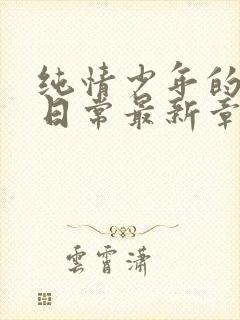 纯情少年的
日常最新章
雲霄潇